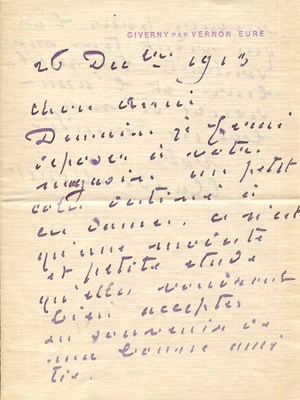 GIVERNY PAR VERNON EURE
26 Dec bre 1913
cher ami
Demain je ferai
deposer à votre
magasin un petit
colis destiné à
ces dames. ce n'est
qu'une modeste
et petite etude
qu'elles voudront
bien accepter
en souvenir de
ma bonne ami
tié.